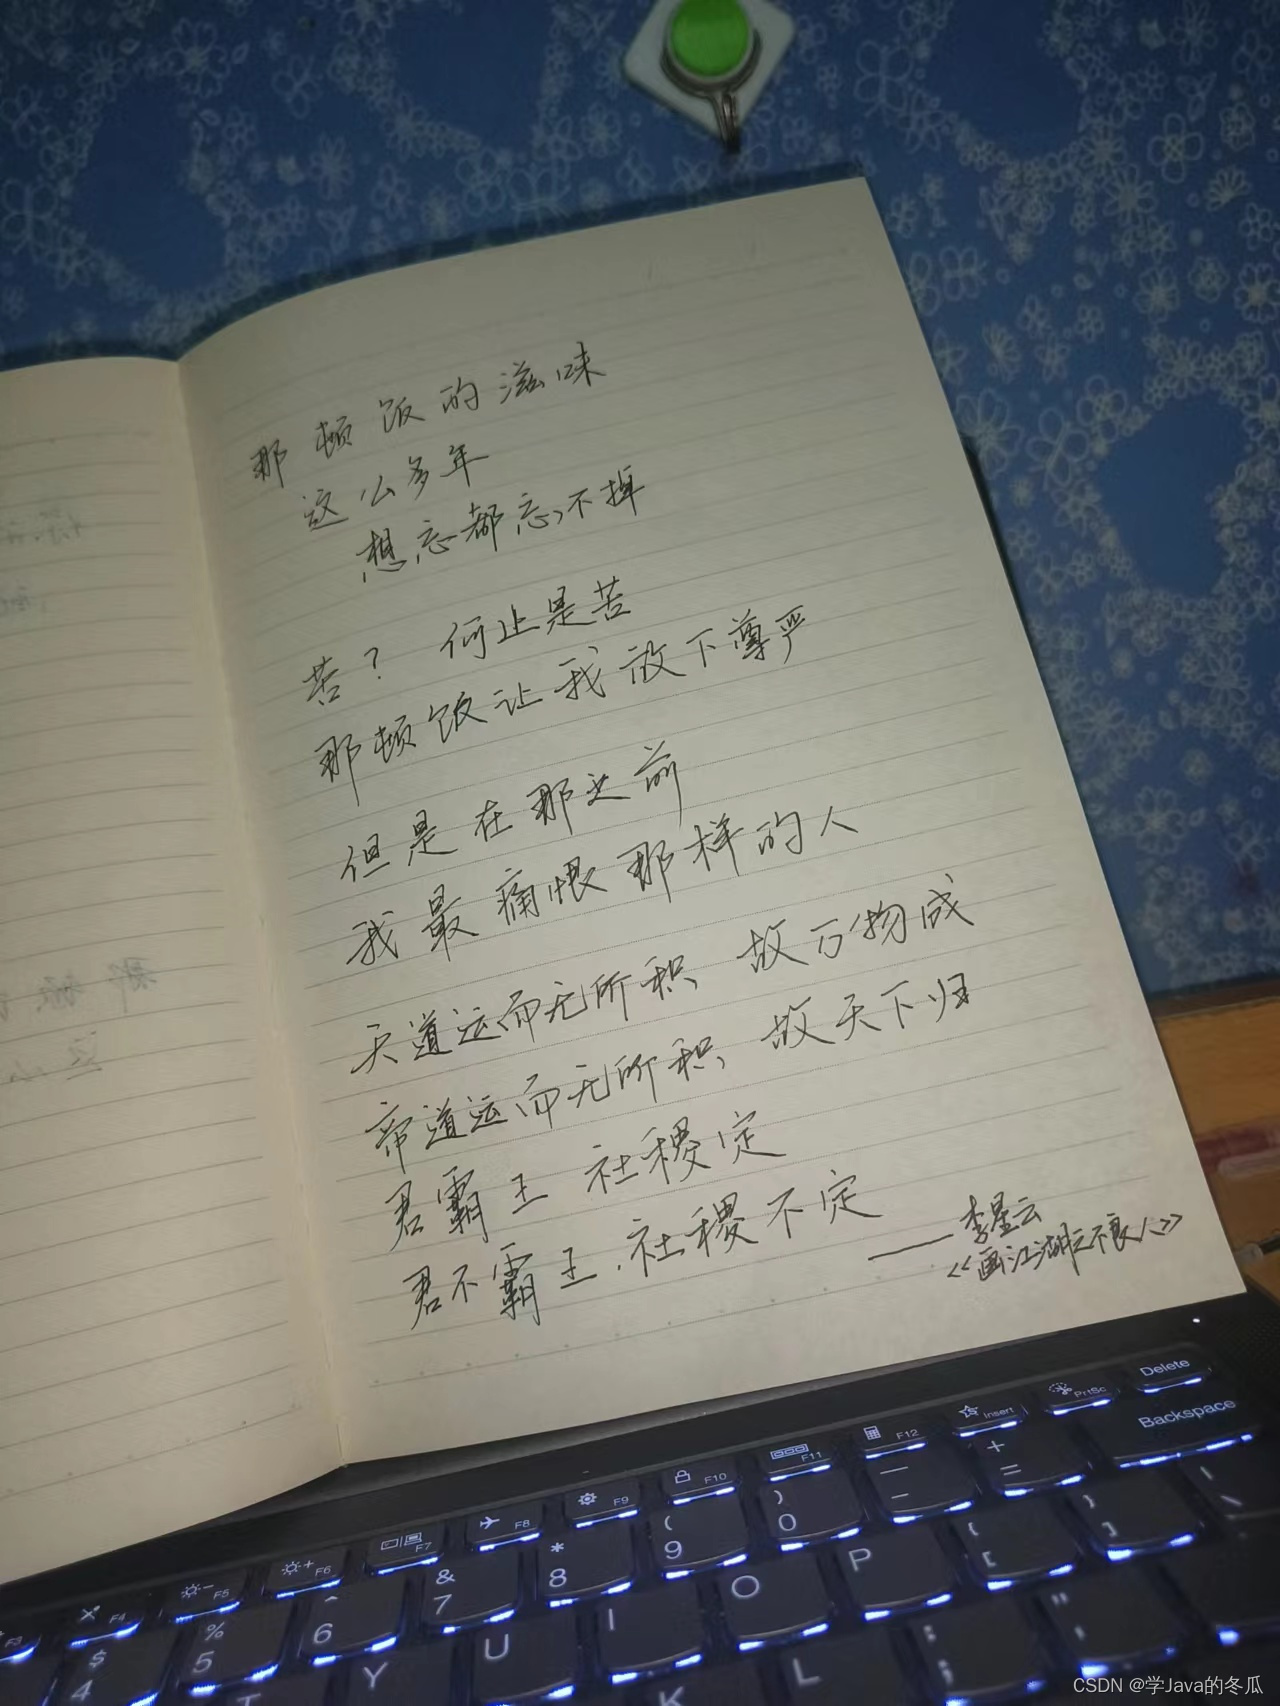 那顿饭的滋味
这么多年
想忘都忘不掉
苦？ 何止是苦
那顿饭让我放下尊严
但是在那之前
我最痛恨那样的人
天道运而无所积，故万物成
帝道运而无所积，故天下归
君霸王 社稷定
君不霸王，社稷不定
——李星云
《画江湖之不良人》
Delete
PrtSc
Insert
F12
F11
F10
F9
F8
F7
F6
F5
F4
F3
Backspace
+ =
— -
) 0
( 9
* 8
& 7
^ 6
% 5
$ 4
} ]
{ [
P
O
I
U
Y
T
| \
" '
: ;
L
K
CSDN @学Java的冬瓜